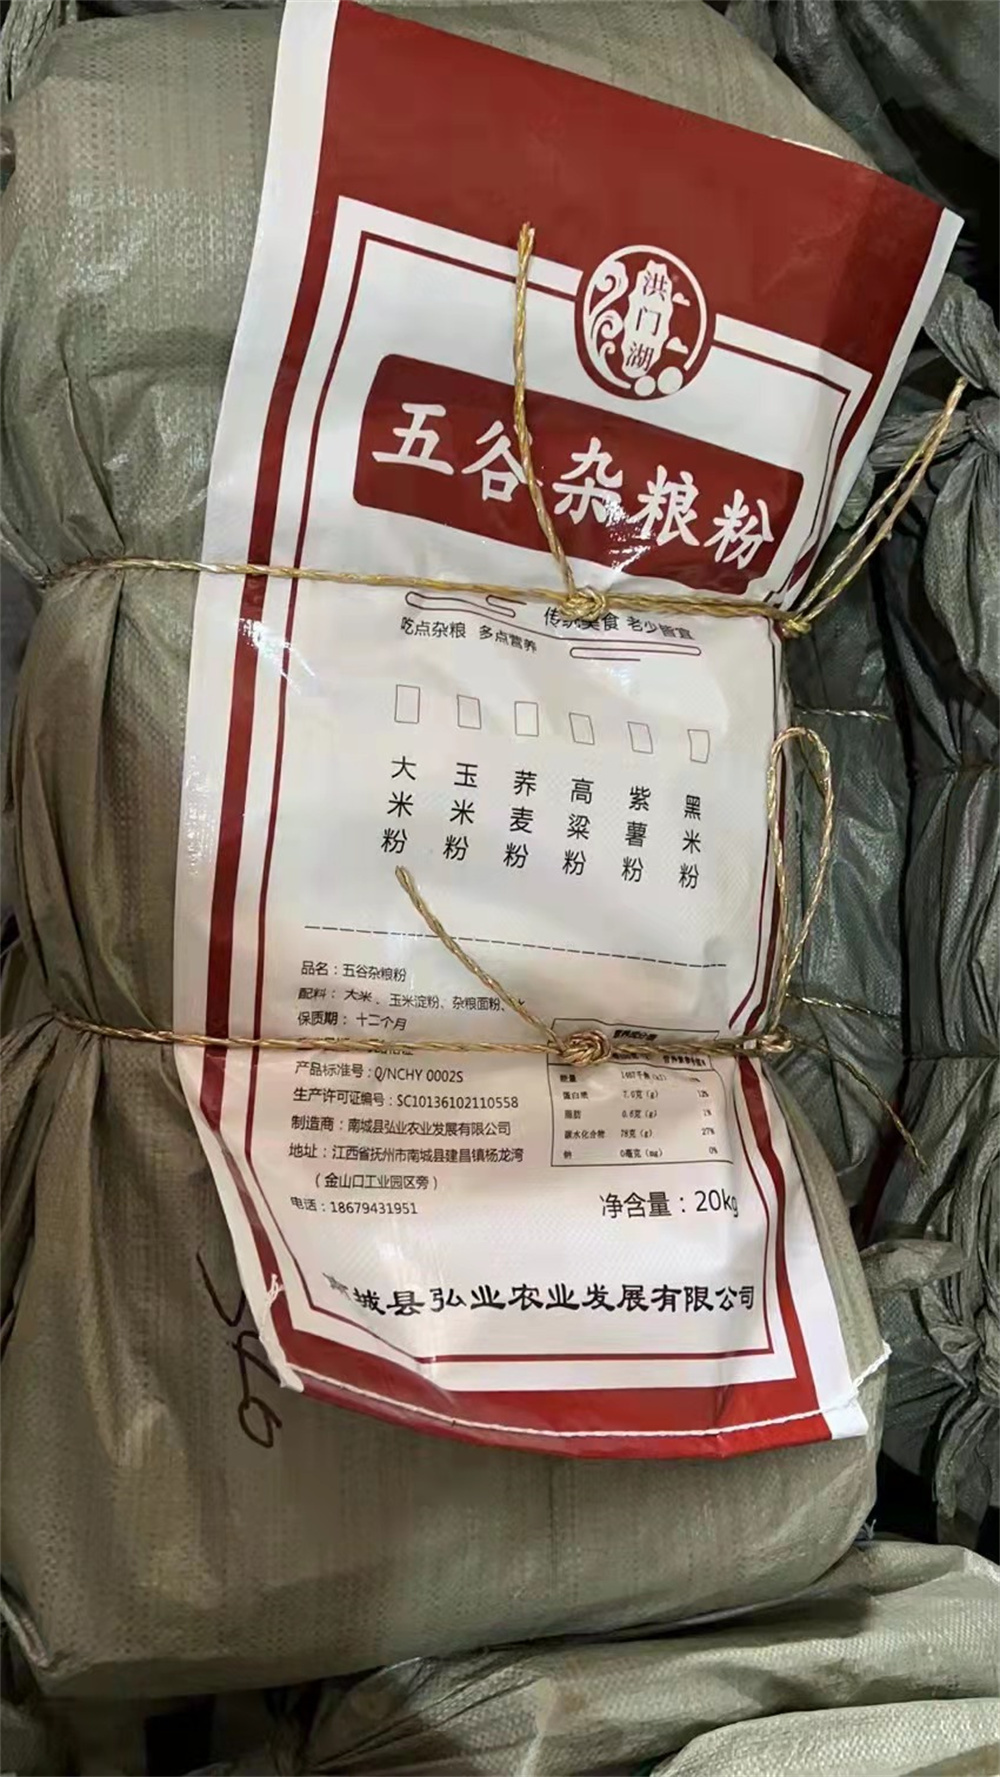 洪门湖
五谷杂粮粉
吃点杂粮 多点营养
传统美食 老少皆宜
大米粉
玉米粉
荞麦粉
高粱粉
紫薯粉
黑米粉
品名：五谷杂粮粉
配料：大米、玉米淀粉、杂粮面粉、水
保质期：十二个月
产品标准号：Q/NCHY 0002S
生产许可证编号：SC10136102110558
制造商：南城县弘业农业发展有限公司
地址：江西省抚州市南城县建昌镇杨龙湾
（金山口工业园区旁）
电话：18679431951
营养成分表
能量 1407千焦(kJ)
蛋白质 7.0克(g) 12%
脂肪 0.6克(g) 1%
碳水化合物 78克(g) 27%
钠 0毫克(mg) 0%
净含量：20kg
南城县弘业农业发展有限公司